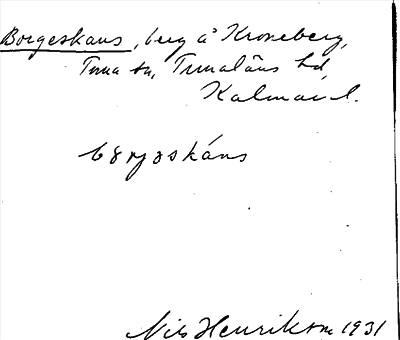 Borgeskans, berg å Kroneberg,
Tuna sn, Tunaläns hd,
Kalmar l.
børjøskáns
Nils Henrikson 1931